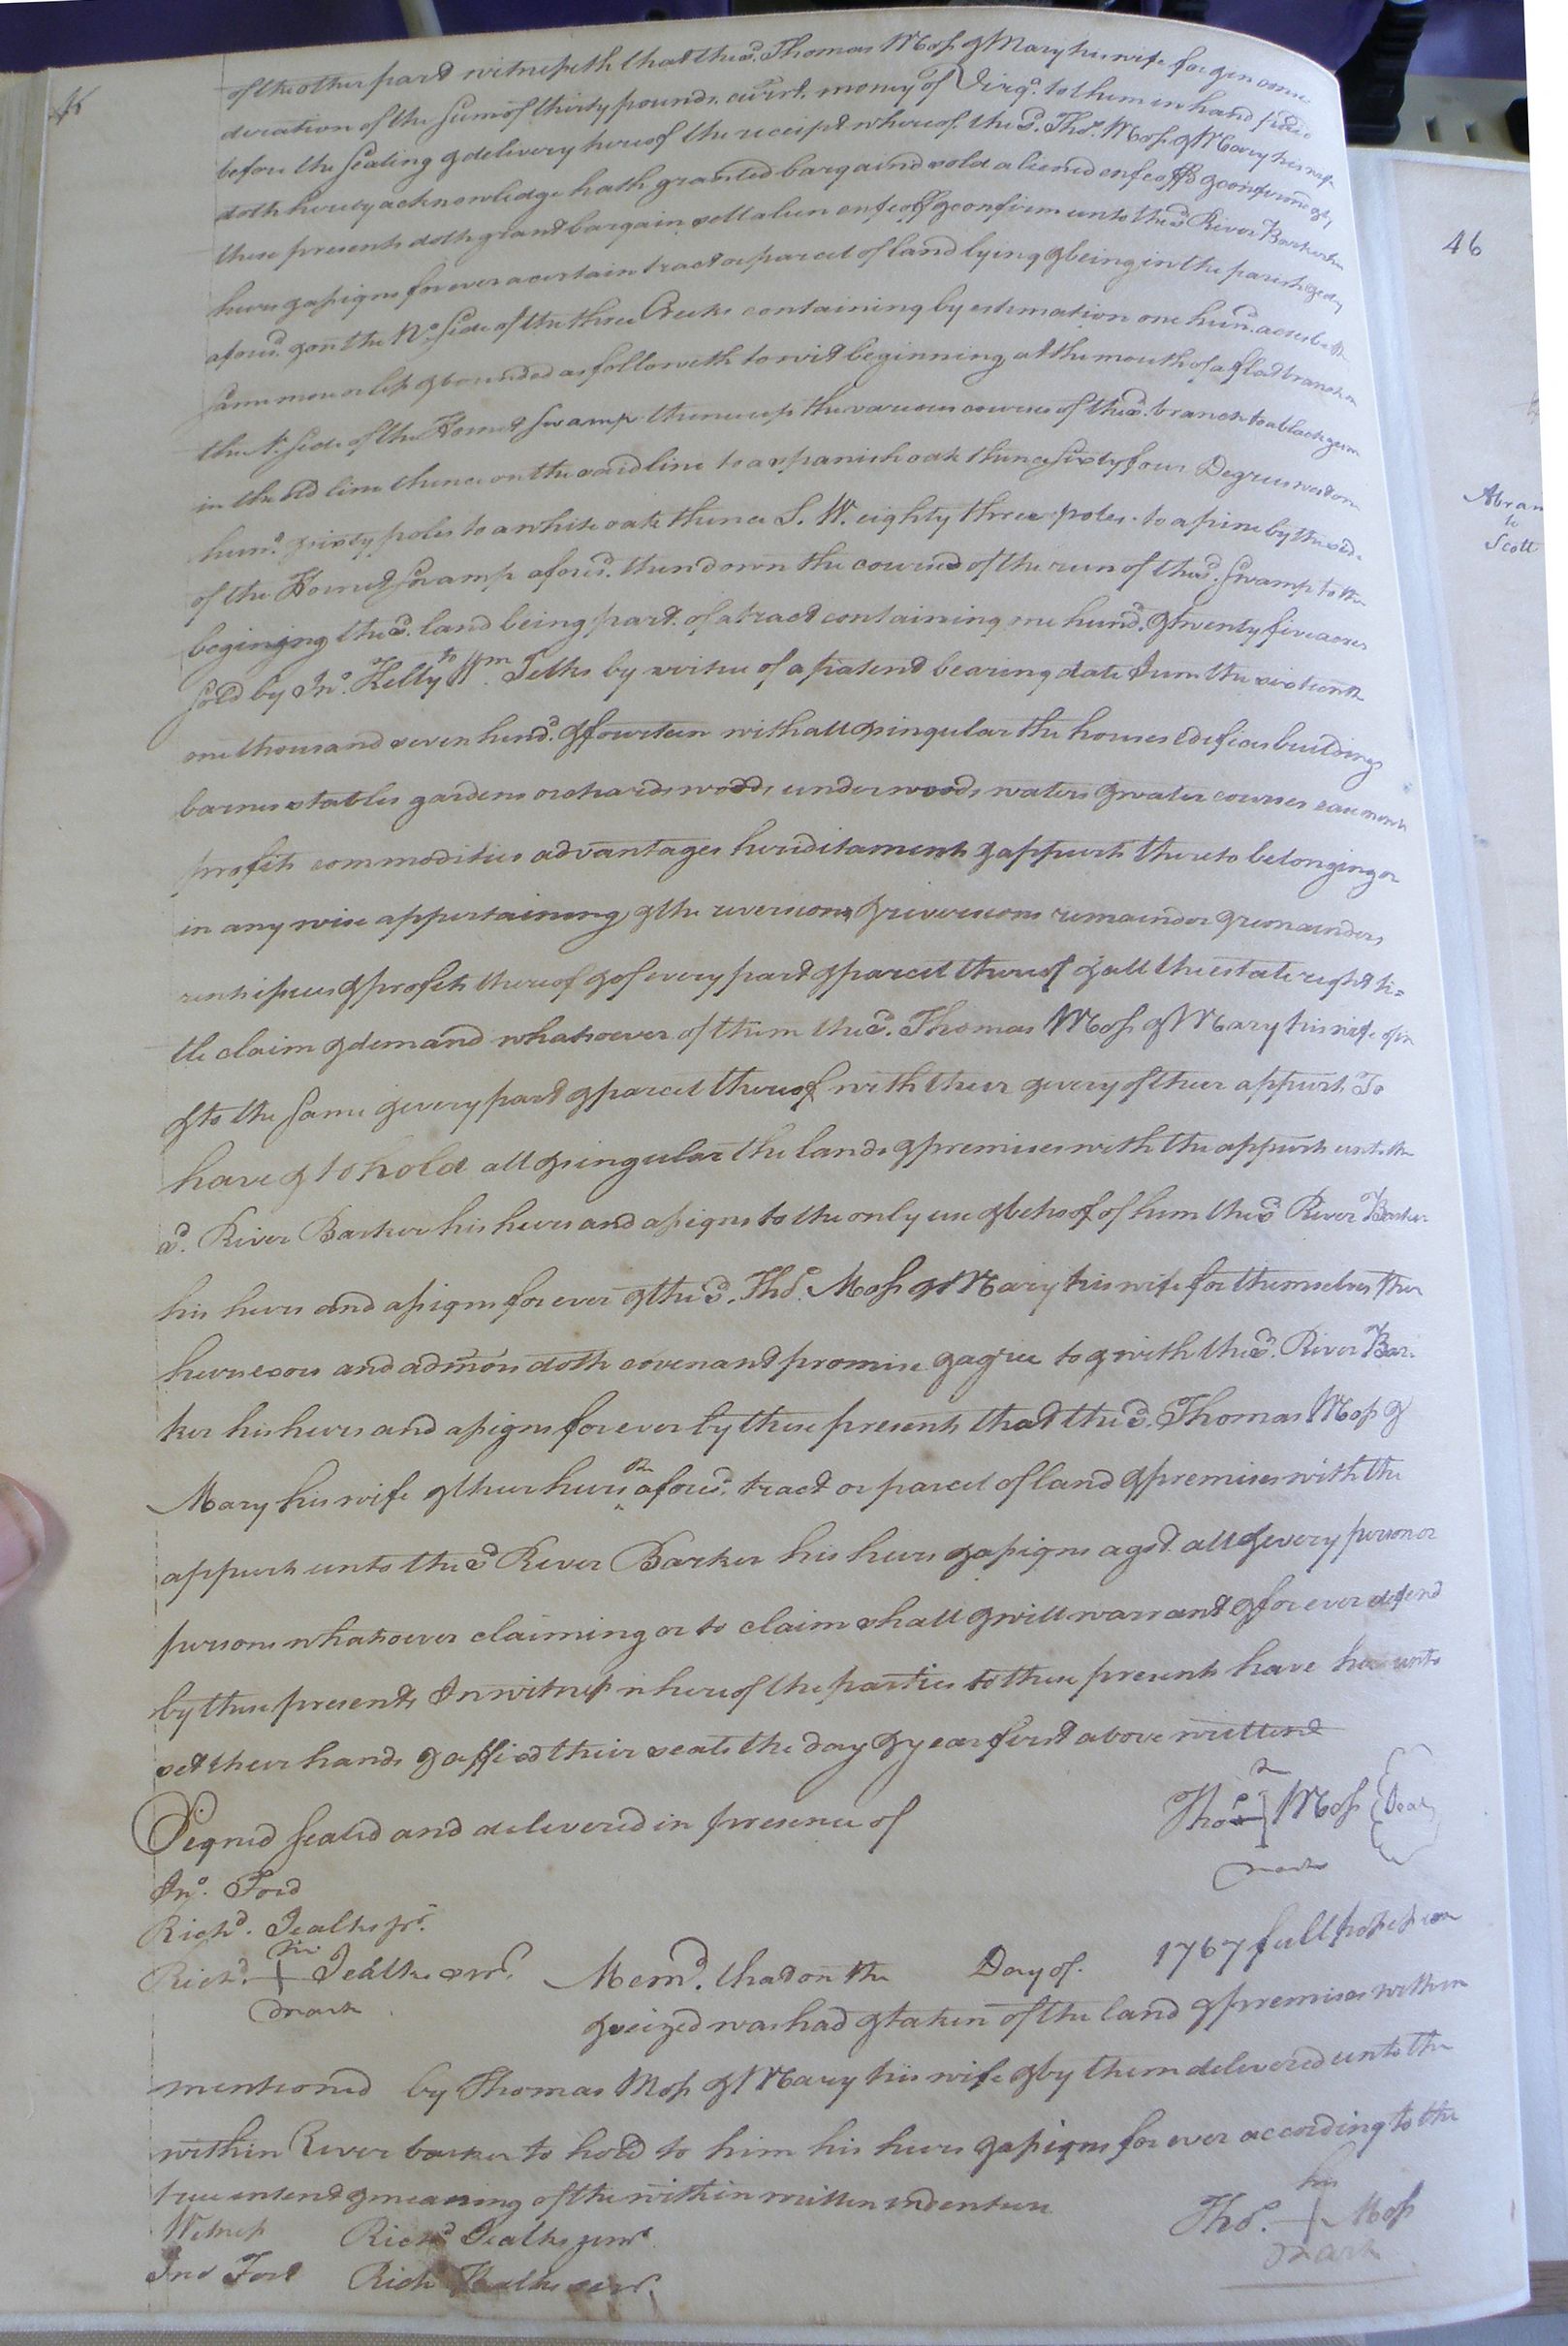 of the other part witnesseth that the sd. Thomas Moss & Mary his wife for & in consi
deration of the Sum of thirty pounds curt. money of Virga. to them in hand paid
before the Sealing & delivery hereof the receipt whereof the sd. Thos. Moss & Mary his wife
doth hereby acknowledge hath granted bargaind sold aliened enfeoffd & confirmd & by
these presents doth grant bargain sell alien enfeoff & confirm unto the sd River Barker his
heirs & assigns for ever a certain tract or parcel of land lying & being in the parish &
aforesd. & on the No. Side of the three Creeks containing by estimation one hund. acres be the
Same more or less & bounded as followeth to wit beginning at the mouth of a flat branch on
the N. Side of the Hornet Swamp thence up the various courses of the sd. branch to a black gum
in the old line thence on the said line to a spanish oak thence sixty four Degrees west one
hund. & sixty poles to a white oak thence S. W. eighty three poles to a pine by the side
of the Hornet Swamp aforesd. then down the courses of the run of the sd. Swamp to the
begining the sd. land being part of a tract containing one hund. & twenty five acres
Sold by Jno. Kelly to Wm. Selks by virtue of a patent bearing date June the sixteenth
one thousand seven hund. & fourteen with all & singular the houses Edifices buildings
barnes stables gardens orchards woods under woods waters & water courses easments
profits commodities advantages heriditaments & appurts thereto belonging or
in any wise appertaining & the reversions & reversions remainder & remainders
rents issues & profits thereof & of every part & parcel thereof & all the estate right ti=
tle claim & demand whatsoever of them the sd. Thomas Moss & Mary his wife of in
& to the Same & every part & parcel thereof with their & every of their appurts. To
have & to hold all & singular the lands & premises with the appurts unto the
sd. River Barker his heirs and assigns to the only use & behoof of him the sd River Barker
his heirs and assigns for ever & the sd. Thos. Moss & Mary his wife for themselves their
heirs exors and admons doth covenant promise & agree to & with the sd. River Bar-
ker his heirs and assigns for ever by these presents that the sd. Thomas Moss &
Mary his wife & their heirs the aforesd. tract or parcel of land & premises with the
appurts unto the sd River Barker his heirs & assigns agst. all & every person or
persons whatsoever claiming or to claim shall & will warrant & for ever defend
by these presents In witness whereof the parties to these presents have hereunto
set their hands & affixd their seals the day & year first above written
Signed Sealed and delivered in presence of
Thos. Moss Seal
mark
Jno. Ford
Richd. Jealks jr.
Richd. his Jealks senr.
mark
Memd. that on the Day of 1767 full possession
& seized was had & taken of the land & premises within
mentioned by Thomas Moss & Mary his wife & by them delivered unto the
within River barker to hold to him his heirs & assigns for ever according to the
true intent & meaning of the within written indenture
his
Thos. Moss
mark
Witness Richd Jealks junr
Jno Ford Richd Jealks senr.
46
Abram
to
Scott